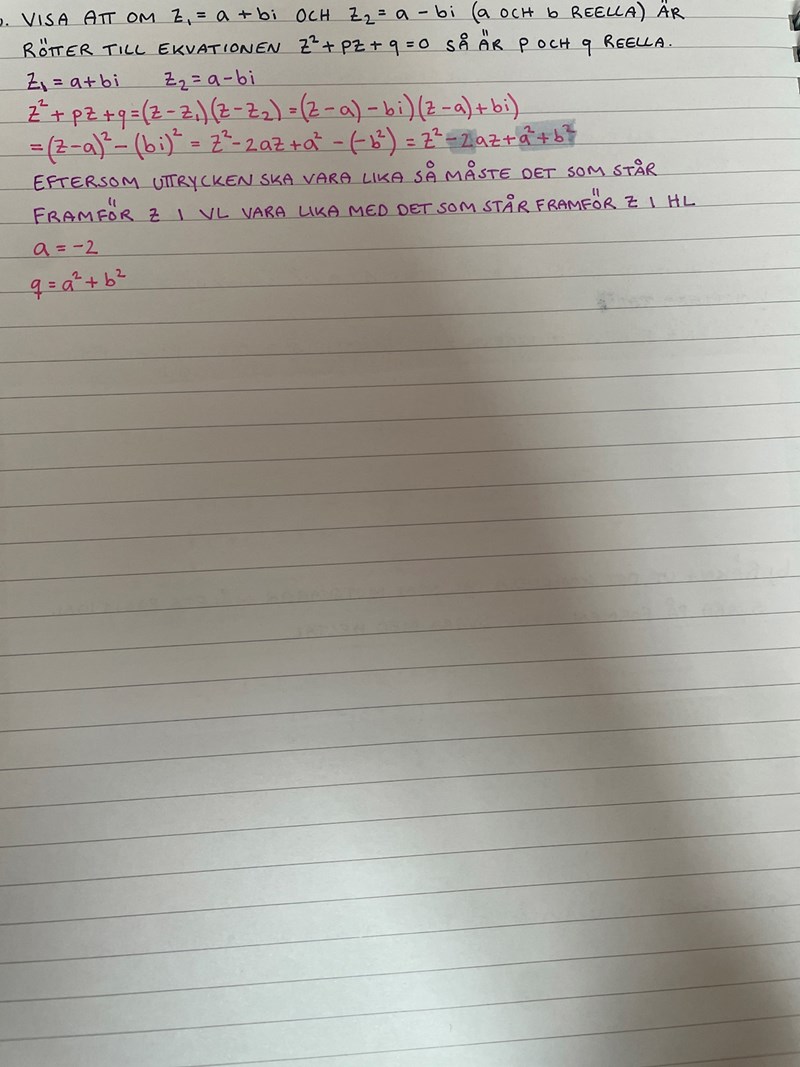 . VISA ATT OM Z₁ = a + bi OCH Z₂ = a - bi (a OCH b REELLA) ÄR
RÖTTER TILL EKVATIONEN Z² + PZ + q = 0 SÅ ÄR P OCH q REELLA.
Z₁ = a + bi Z₂ = a - bi
Z² + pZ + q = (Z - Z₁)(Z - Z₂) = (Z - a) - bi)(Z - a) + bi)
= (Z - a)² - (bi)² = Z² - 2aZ + a² - (-b²) = Z² - 2aZ + a² + b²
EFTERSOM UTTRYCKEN SKA VARA LIKA SÅ MÅSTE DET SOM STÅR
FRAMFÖR Z I VL VARA LIKA MED DET SOM STÅR FRAMFÖR Z I HL
a = -2
q = a² + b²